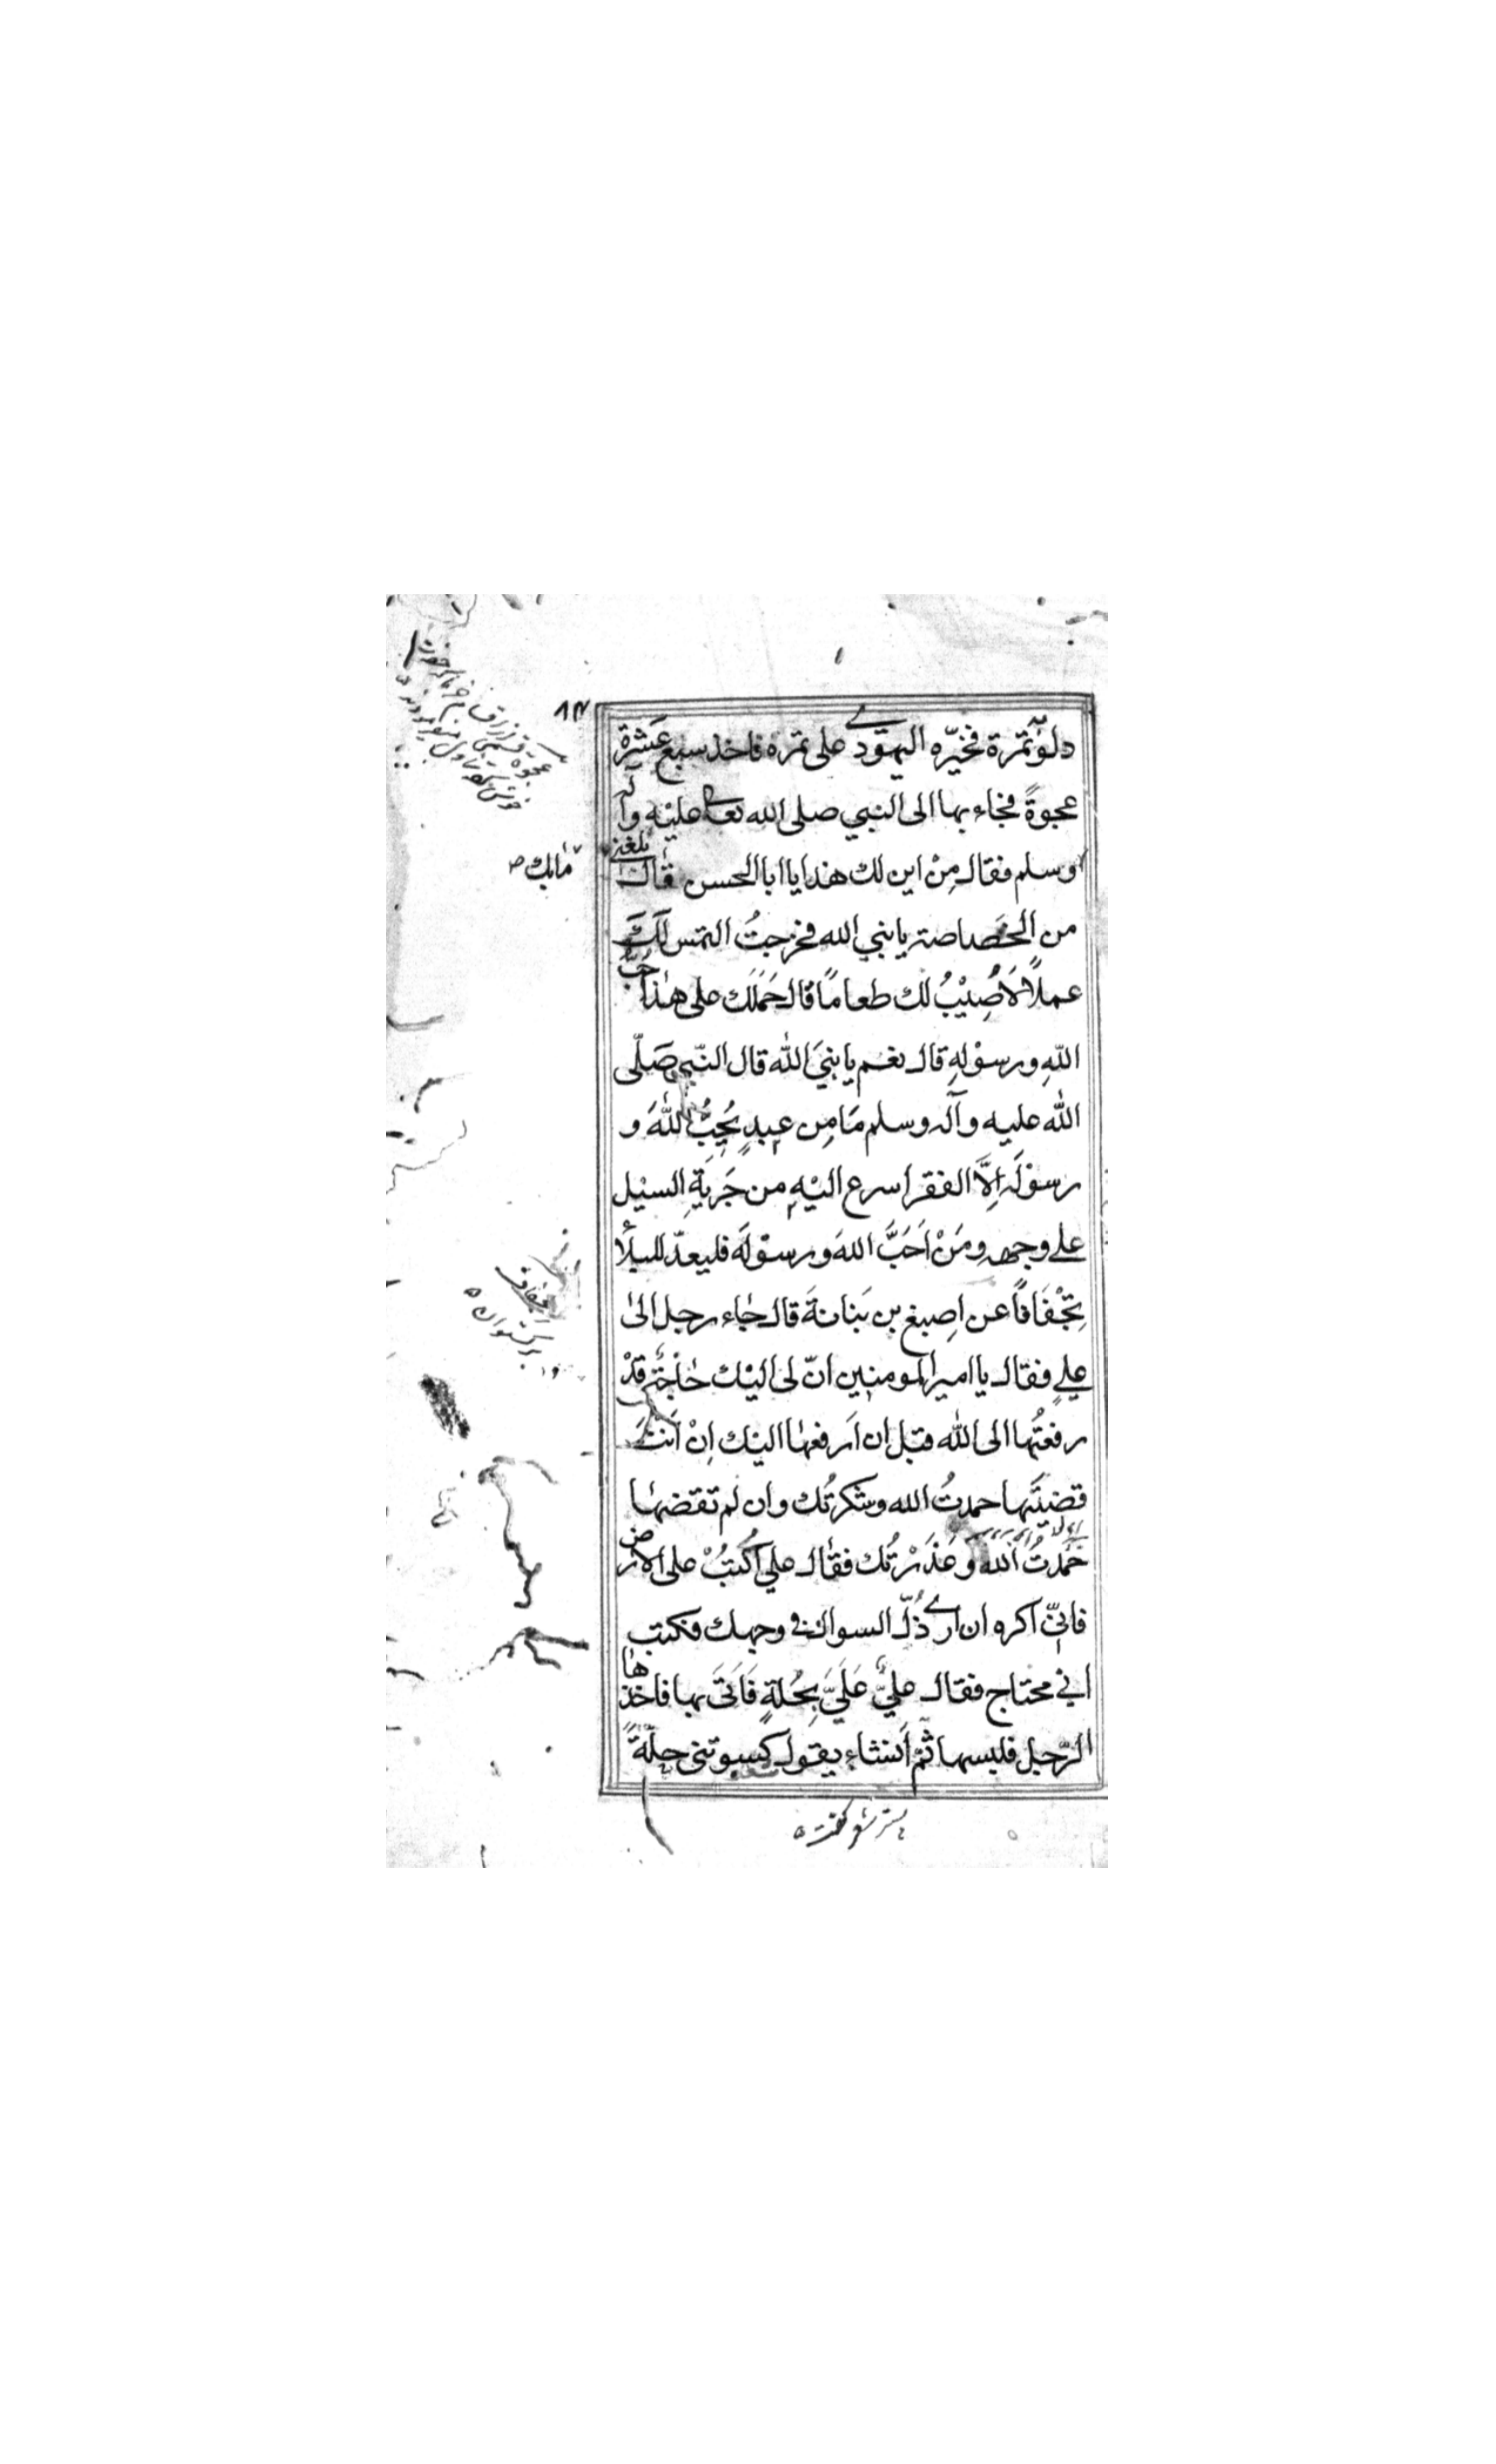 دلوٌ تمرة فخيّره اليهودى على تمره فاخذ سبع عَشرة
عجوةً فجاء بها الى النبي صلى الله تعالى عليه وآله
وسلم فقال مِنْ اين لك هذا يا ابا الحسن قال بلغنى
مابك
من الخَصاصة يا نبي الله فخرجتُ التمس لَكَ
عملاً لاَصِيْبُ لك طعامًا قال حَمَلَك على هٰذا حُبّ
اللّهِ ورسوْلِهِ قال نعم يا نبيَ اللّه قال النّبي صَلّى
اللّه عليه وآله وسلم مَا مِن عبدٍ يُحِبُّ اللّهَ و
رسوْلَه اِلاَّ الفقر اسرع اليْهِ من جَرِيَةِ السيْل
على وجهه ومَنْ اَحَبَّ اللهَ ورسوْلَه فليعدّ للبلأ
تِجْفَافًا عن اصبغ بن نباتة قال جاء رجل الىٰ
علي فقال يا امير المومنين انّ لى اليْك حاجة قدْ
رفعتُها الى اللّه قبل ان ارفعها اليْك اِنْ اَنْتَ
قضيتَها حمدتُ الله وشكرتُك وان لم تقضها
حَمدتُ اللّه وَعَذَرْتُك فقال علي اكتُبْ على الارض
فانىّ اكره ان ارى ذُلّ السوال فى وجهك فكتب
اني محتاج فقال عليٌّ عَلَيَّ بِحُلةٍ فَاَتىَ بها فاخذها
الرّجل فلبسها ثمّ اَنشاء يقول كسوتنى حلّةً